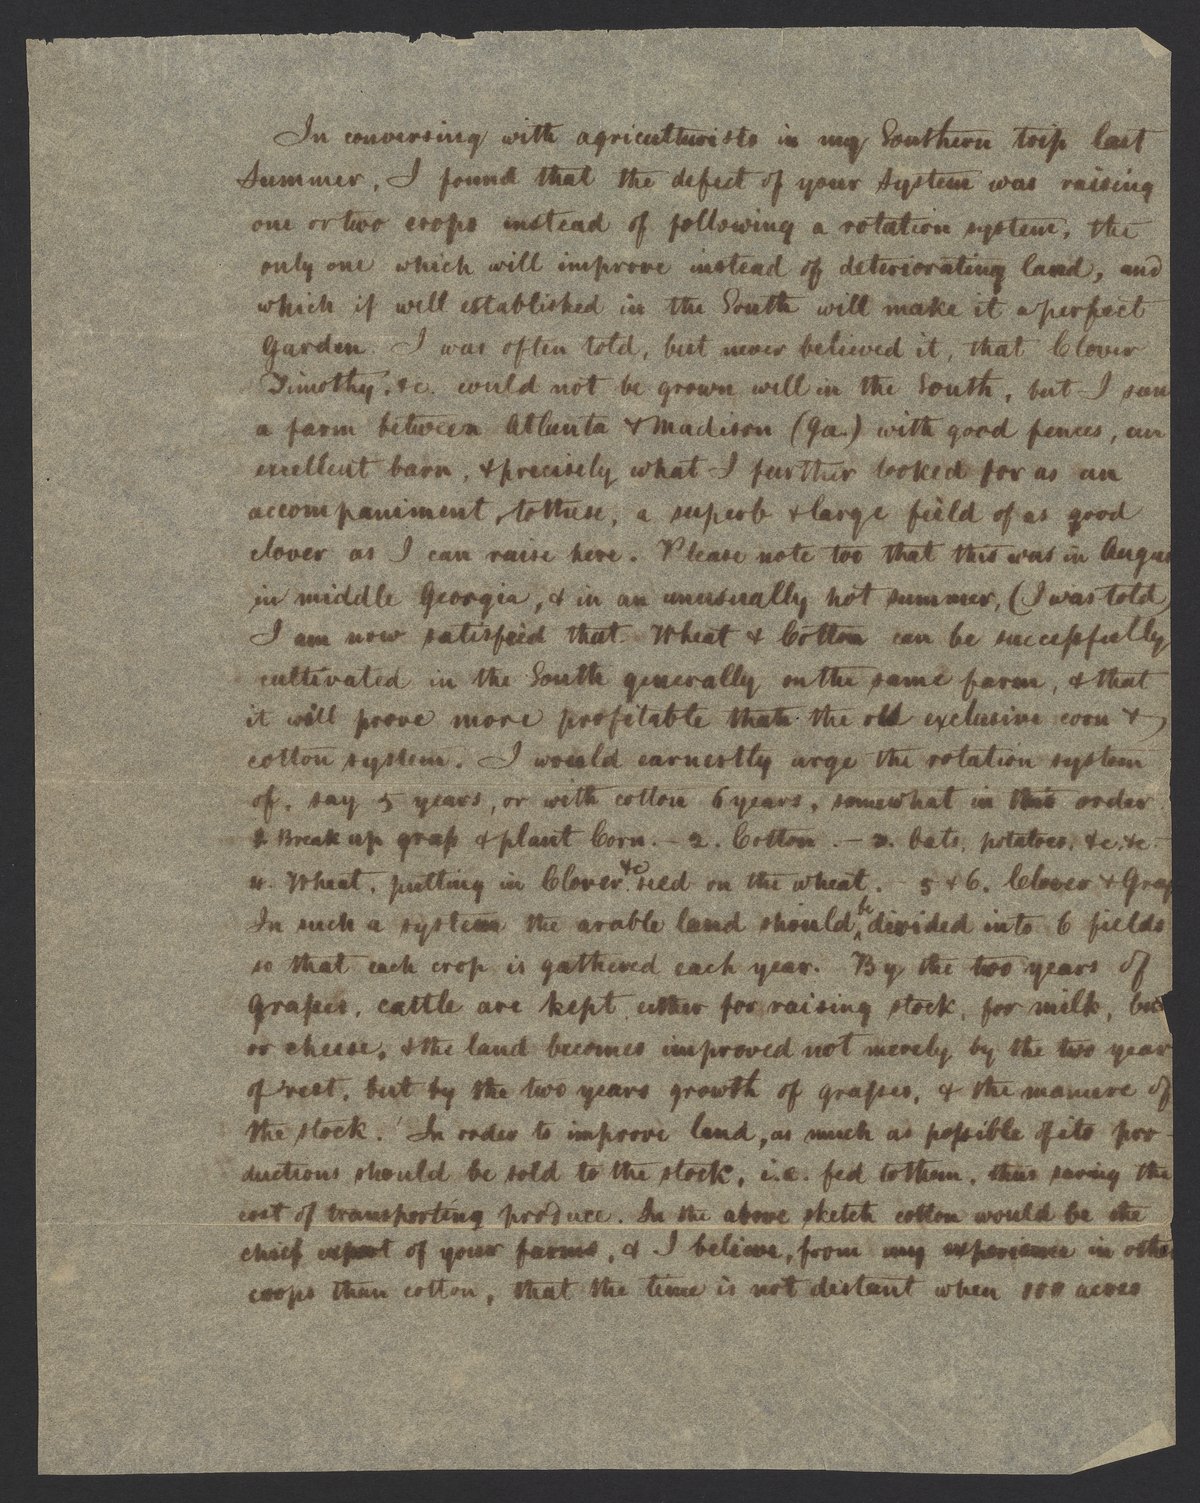 In conversing with agriculturists in my Southern trip last
Summer, I found that the defect of your system was raising
one or two crops instead of following a rotation system, the
only one which will improve instead of deteriorating land, and
which if well established in the South will make it a perfect
Garden. I was often told, but never believed it, that Clover
Timothy, &c. could not be grown well in the South, but I saw
a farm between Atlanta & Madison (Ga.) with good fences, an
excellent barn, & precisely what I further looked for as an
accompaniment, to these, a superb & large field of as good
clover as I can raise here. Please note too that this was in Augus
in middle Georgia, & in an unusually hot summer, (I was told)
I am now satisfied that Wheat & Cotton can be successfully
cultivated in the South generally on the same farm, & that
it will prove more profitable than the old exclusive corn &
cotton system. I would earnestly urge the rotation system
of, say 5 years, or with cotton 6 years, somewhat in this order
1 Break up grass & plant Corn. - 2. Cotton. - 3. Oats, potatoes, &c. &c. -
4. Wheat, putting in Clover &c seed on the wheat. - 5 & 6. Clover & Gras
In such a system the arable land should be divided into 6 fields
so that each crop is gathered each year. By the two years of
Grasses, cattle are kept either for raising stock, for milk, but
or cheese, & the land becomes improved not merely by the two year
of rest, but by the two years growth of grasses, & the manure of
the stock. In order to improve land, as much as possible of its pro-
ductions should be sold to the stock, i.e. fed to them, thus saving the
cost of transporting produce. In the above sketch cotton would be the
chief export of your farms, & I believe, from my experience in othe
crops than cotton, that the time is not distant when 100 acres